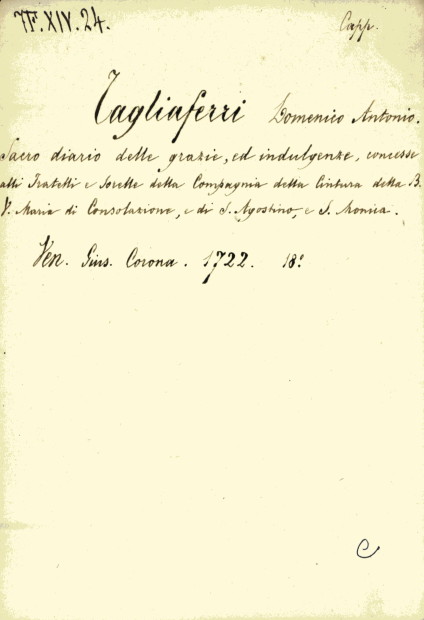 7F.XIV.24.
Capp.
Tagliaferri Domenico Antonio.
Sacro diario delle grazie, ed indulgenze, concesse
alli Fratelli e Sorelle della Compagnia della Cintura della B.
V. Maria di Consolazione, e di S. Agostino, e S. Monica.
Ven. Gius. Corona. 1722. 18º
C